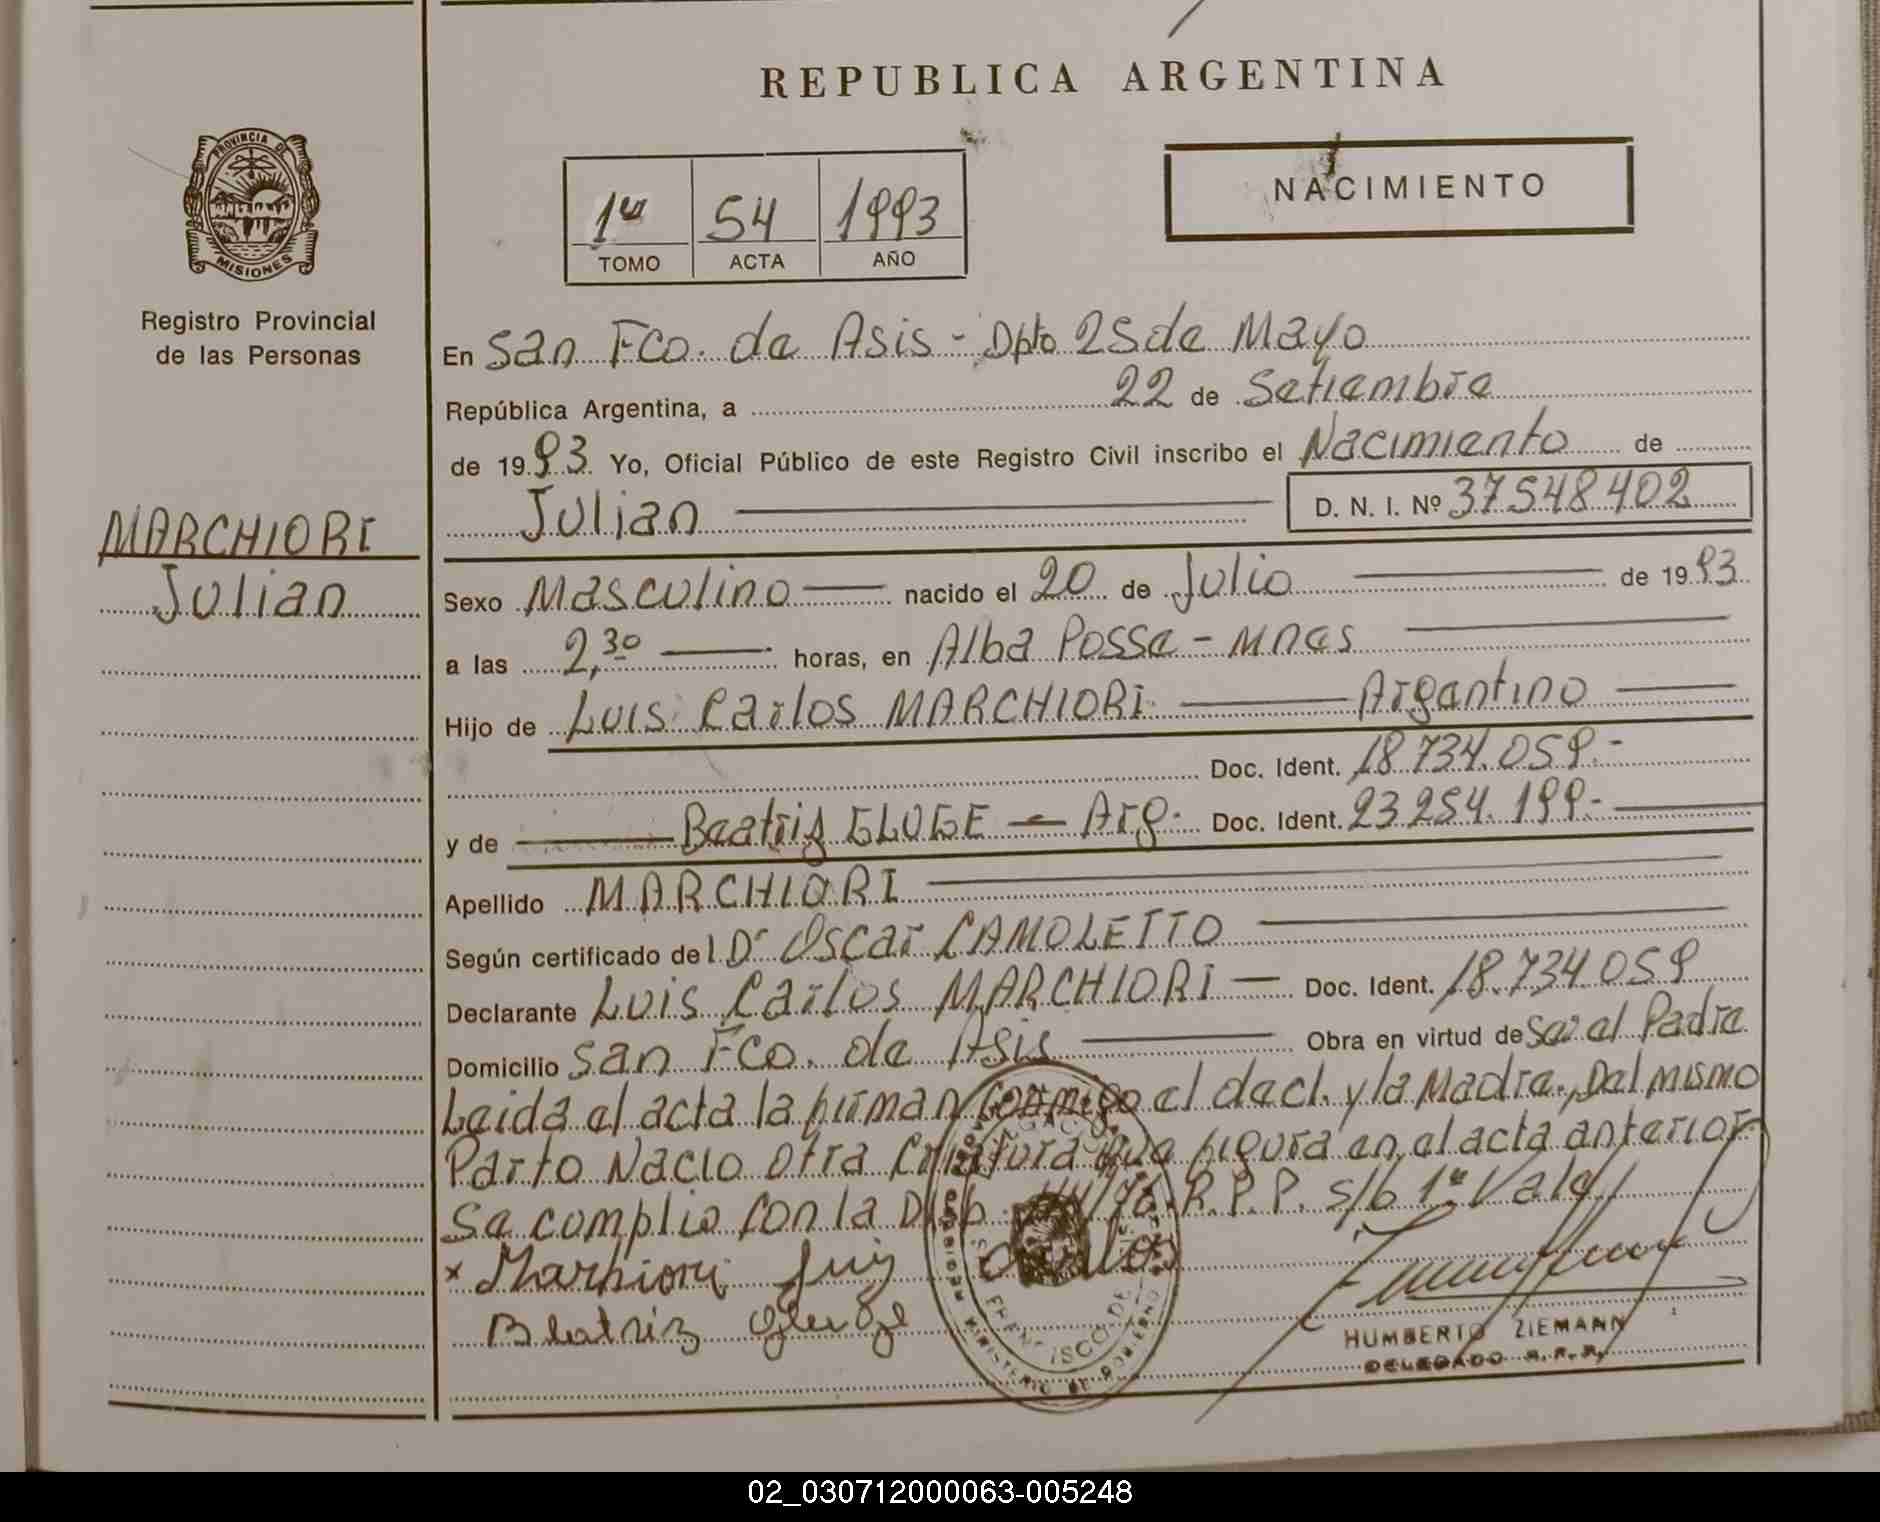 REPUBLICA ARGENTINA
PROVINCIA DE
MISIONES
Registro Provincial
de las Personas
1º 54 1993
TOMO ACTA AÑO
NACIMIENTO
En San Fco. de Asis - Dpto 25 de Mayo
República Argentina, a 22 de Setiembre
de 1993 Yo, Oficial Público de este Registro Civil inscribo el Nacimiento de
Julian D. N. I. Nº 37548402
MARCHIORI
Julian
Sexo Masculino nacido el 20 de Julio de 1993
a las 2,30 horas, en Alba Posse - Mnes
Hijo de Luis Carlos MARCHIORI Argentino
Doc. Ident. 18.734.059.-
y de Beatriz GLUGE - Arg. Doc. Ident. 23 254.199.-
Apellido MARCHIORI
Según certificado del Dr Oscar CAMOLETTO
Declarante Luis Carlos MARCHIORI - Doc. Ident. 18.734.059
Domicilio San Fco. de Asis Obra en virtud de Ser el Padre
Leida el acta la firman conmigo el decl. y la Madre. Del mismo
Parto Nacio otra Criatura que figura en el acta anterior
Se cumplio con la Disp. /76 R.P.P. s/b 1º Vale/
x Marchiori Luis Carlos
Beatriz
HUMBERTO ZIEMANN
DELEGADO R. P. P.
MINISTERIO DE GOBIERNO
02_030712000063-005248